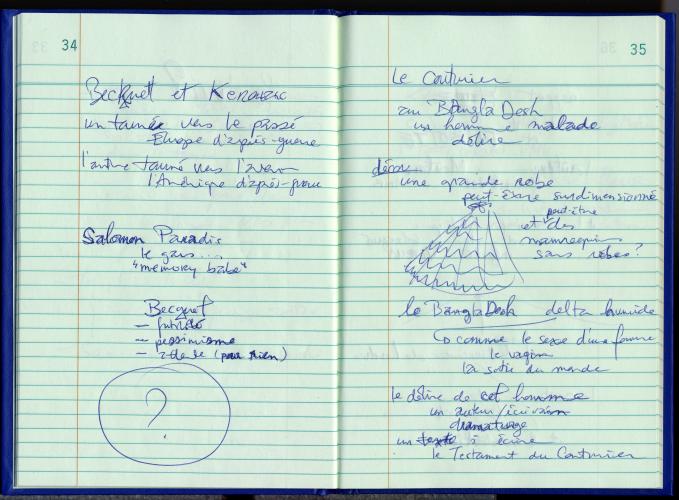 34
Becquet et Kerouac
un tourné vers le passé
Europe d'après-guerre
l'autre tourné vers l'avenir
l'Amérique d'après-guerre
Salomon Paradis
le gars...
"memory babe"
Becquet
— futilité
— pessimisme
(pour rien)
?
35
Le Couturier
au BanglaDesh
un homme malade
délire
décor
une grande robe
peut-être surdimensionné
et peut-être des
mannequins
sans robes?
le BanglaDesh delta humide
comme le sexe d'une femme
le vagin
la sortie du monde
le délire de cet homme
un auteur/écrivain
dramaturge
un texte à écrire
le Testament du Couturier